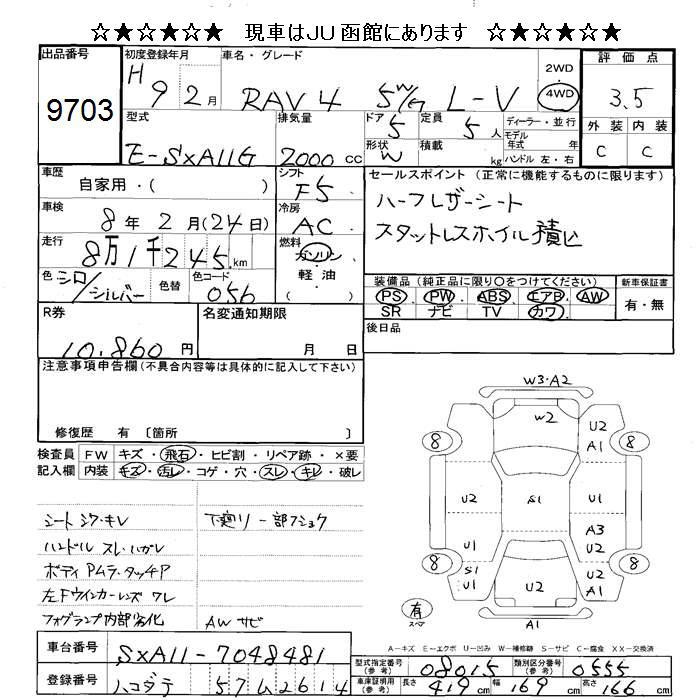 ☆★☆★☆★ 現車はJU函館にあります ☆★☆★☆★
出品番号 9703
初度登録年月 H 9 2月
車名・グレード RAV4 5W/G L-V
2WD 4WD
評価点 3.5
外装 内装
C C
型式 E-SXA11G
排気量 2000 CC
ドア 5
定員 5人
ディーラー・並行
形状 W
積載 kg
モデル年式 年
ハンドル 左・右
車歴 自家用・( )
シフト F5
セールスポイント (正常に機能するものに限ります)
ハーフレザーシート
スタットレスホイル積込
車検 8年2月(24日)
冷房 AC
走行 8万1千245km
燃料 ガソリン・軽油 ( )
色 シロ/シルバー
色替
色コード 056
装備品 (純正品に限り〇をつけてください)
新車保証書
PS・PW・ABS・エアB・AW
SR ナビ TV カワ
有・無
R券 10,860円
名変通知期限 月 日
後日品
注意事項申告欄(不具合内容等は具体的に記入して下さい)
修復歴 有 〔箇所 〕
検査員記入欄
FW キズ・飛石・ヒビ割・リペア跡・×要
内装 キズ・汚レ・コゲ・穴・スレ・キレ・破レ
シート シワ・キレ
下廻リ 一部フショク
ハンドル スレ・ハガレ
ボディ Pムラ・タッチP
左Fウインカーレンズ ワレ
フォグランプ内部劣化
AW サビ
W3・A2
W2
U2
A1
8
8
U2
S1
U1
U1
A3
U2
8
8
S1
U1
U2
U2
A1
有
スペア
A1
A-キズ E-エクボ U-凹み W-補修跡 S-サビ C-腐食 XX-交換済
車台番号 SXA11-7048481
登録番号 ハコダテ 57ム2614
型式指定番号(参考) 08015
類別区分番号(参考) 0555
車庫証明用(参考) 長さ 419cm 幅 169cm 高さ 166cm